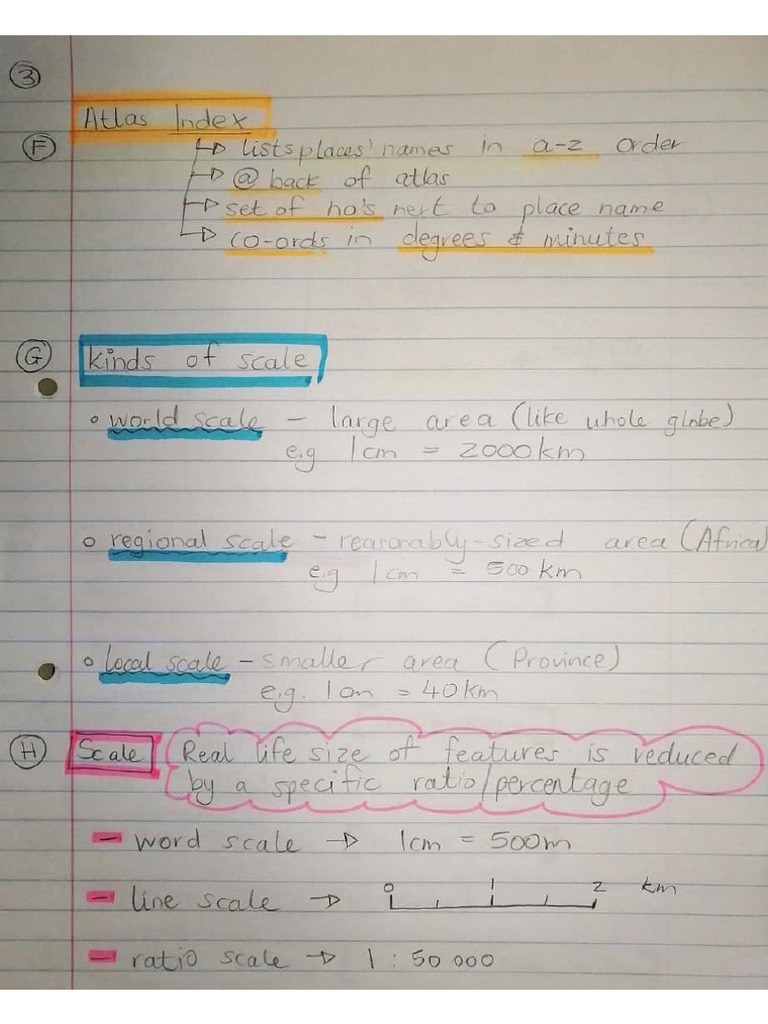 3
Atlas Index
F
→ lists places' names in a-z order
→ @ back of atlas
→ set of no's next to place name
→ co-ords in degrees & minutes
G
kinds of scale
world scale - large area (like whole globe)
e.g 1cm = 2000km
regional scale - reasonably-sized area (Africa)
e.g 1cm = 500km
local scale - smaller area (Province)
e.g. 1cm = 40km
H Scale Real life size of features is reduced
by a specific ratio/percentage
- word scale → 1cm = 500m
- line scale → 0 1 2 km
- ratio scale → 1 : 50 000